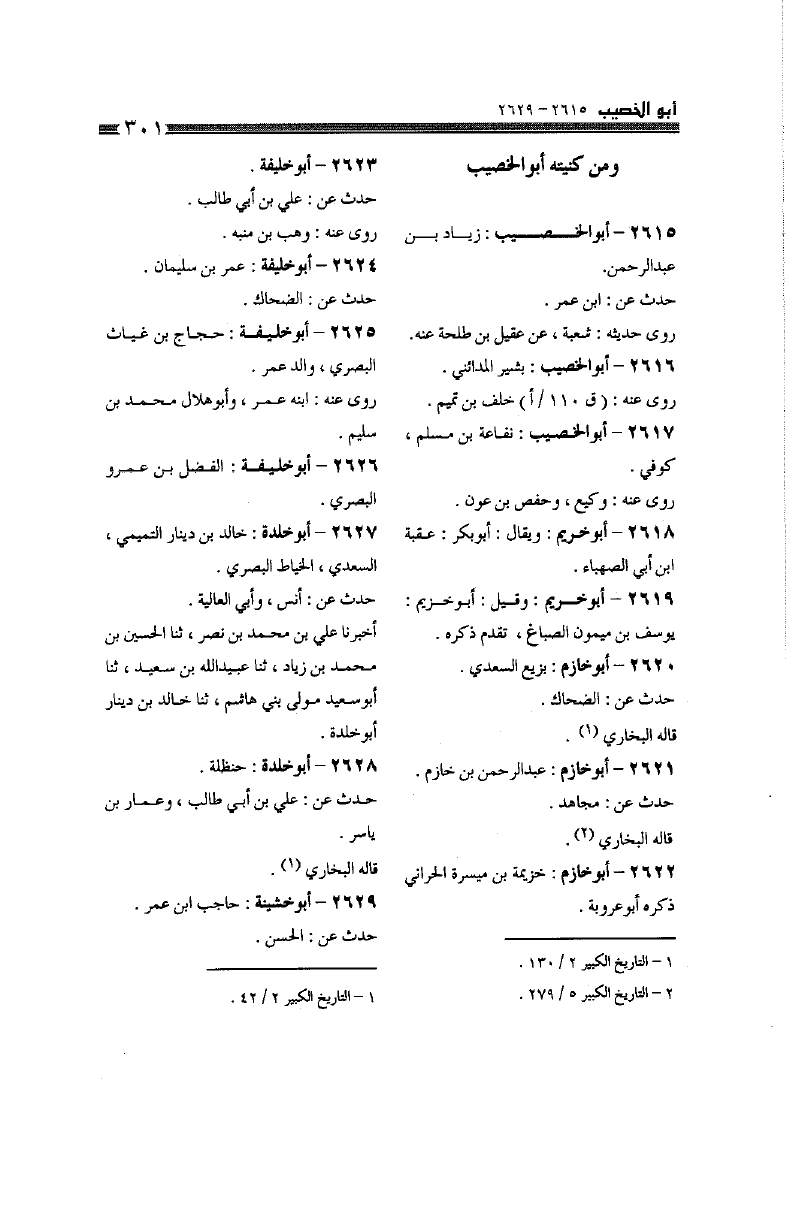 أبو الخصيب ٢٦١٥ – ٢٦٢٩
٣٠١
ومن كنيته أبوالخصيب
٢٦١٥ – أبوالخصيب : زياد بن
عبدالرحمن.
حدث عن : ابن عمر .
روى حديثه : شعبة ، عن عقيل بن طلحة عنه.
٢٦١٦ – أبوالخصيب : بشير المدائني .
روى عنه : ( ق ١١٠ / أ ) خلف بن تميم .
٢٦١٧ – أبوالخصيب : نفاعة بن مسلم ،
كوفي .
روى عنه : وكيع ، وحفص بن عون .
٢٦١٨ – أبوخريم : ويقال : أبوبكر : عقبة
ابن أبي الصهباء .
٢٦١٩ – أبوخريم : وقيل : أبوخزيم :
يوسف بن ميمون الصباغ ، تقدم ذكره .
٢٦٢٠ – أبوخازم : بزيع السعدي .
حدث عن : الضحاك .
قاله البخاري (١) .
٢٦٢١ – أبوخازم : عبدالرحمن بن خازم .
حدث عن : مجاهد .
قاله البخاري (٢) .
٢٦٢٢ – أبوخازم : خزيمة بن ميسرة الحراني
ذكره أبوعروبة .
١ – التاريخ الكبير ٢ / ١٣٠ .
٢ – التاريخ الكبير ٥ / ٢٧٩ .
٢٦٢٣ – أبوخليفة .
حدث عن : علي بن أبي طالب .
روى عنه : وهب بن منبه .
٢٦٢٤ – أبوخليفة : عمر بن سليمان .
حدث عن : الضحاك .
٢٦٢٥ – أبوخليفة : حجاج بن غياث
البصري ، والد عمر .
روى عنه : ابنه عمر ، وأبوهلال محمد بن
سليم .
٢٦٢٦ – أبوخليفة : الفضل بن عمرو
البصري .
٢٦٢٧ – أبوخلدة : خالد بن دينار التميمي ،
السعدي ، الخياط البصري .
حدث عن : أنس ، وأبي العالية .
أخبرنا علي بن محمد بن نصر ، ثنا الحسين بن
محمد بن زياد ، ثنا عبيدالله بن سعيد ، ثنا
أبوسعيد مولى بني هاشم ، ثنا خالد بن دينار
أبوخلدة .
٢٦٢٨ – أبوخلدة : حنظلة .
حدث عن : علي بن أبي طالب ، وعمار بن
ياسر .
قاله البخاري (١) .
٢٦٢٩ – أبوخشينة : حاجب ابن عمر .
حدث عن : الحسن .
١ – التاريخ الكبير ٢ / ٤٢ .